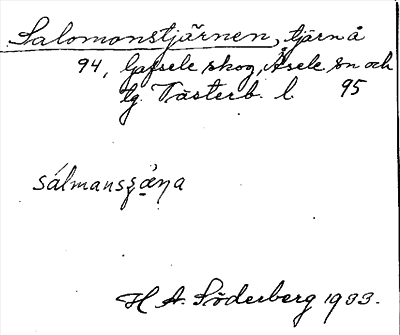 Salomonstjärnen, tjärn å
94, Gafsele skog, Åsele sn och
lg. Västerb. l. 95
H A. Söderberg 1933.